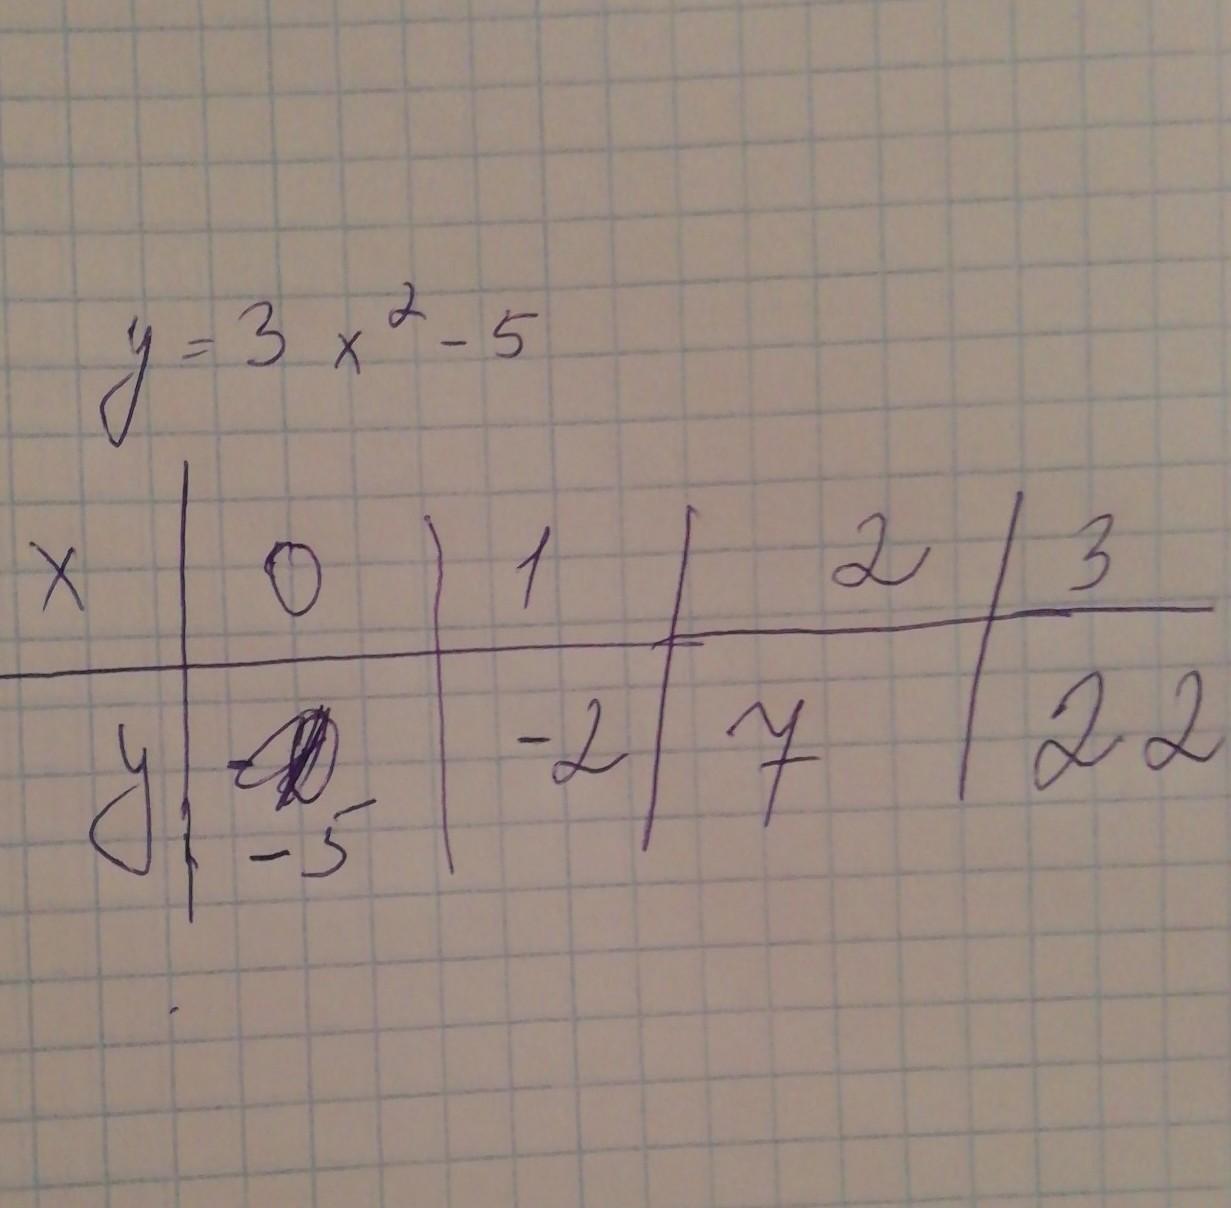 y = 3 x² - 5
x 0 1 2 3
y -2 7 22
-5